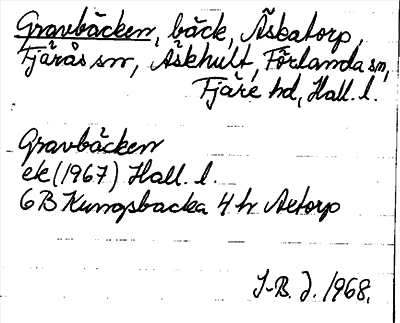 Gravbäcken, bäck, Äskatorp,
Fjärås sn, Äskhult, Förlanda sn,
Fjäre hd, Hall. l.
Gravbäcken
ek (1967) Hall. l.
6B Kungsbacka 4h Aetorp
J-B. J. 1968.